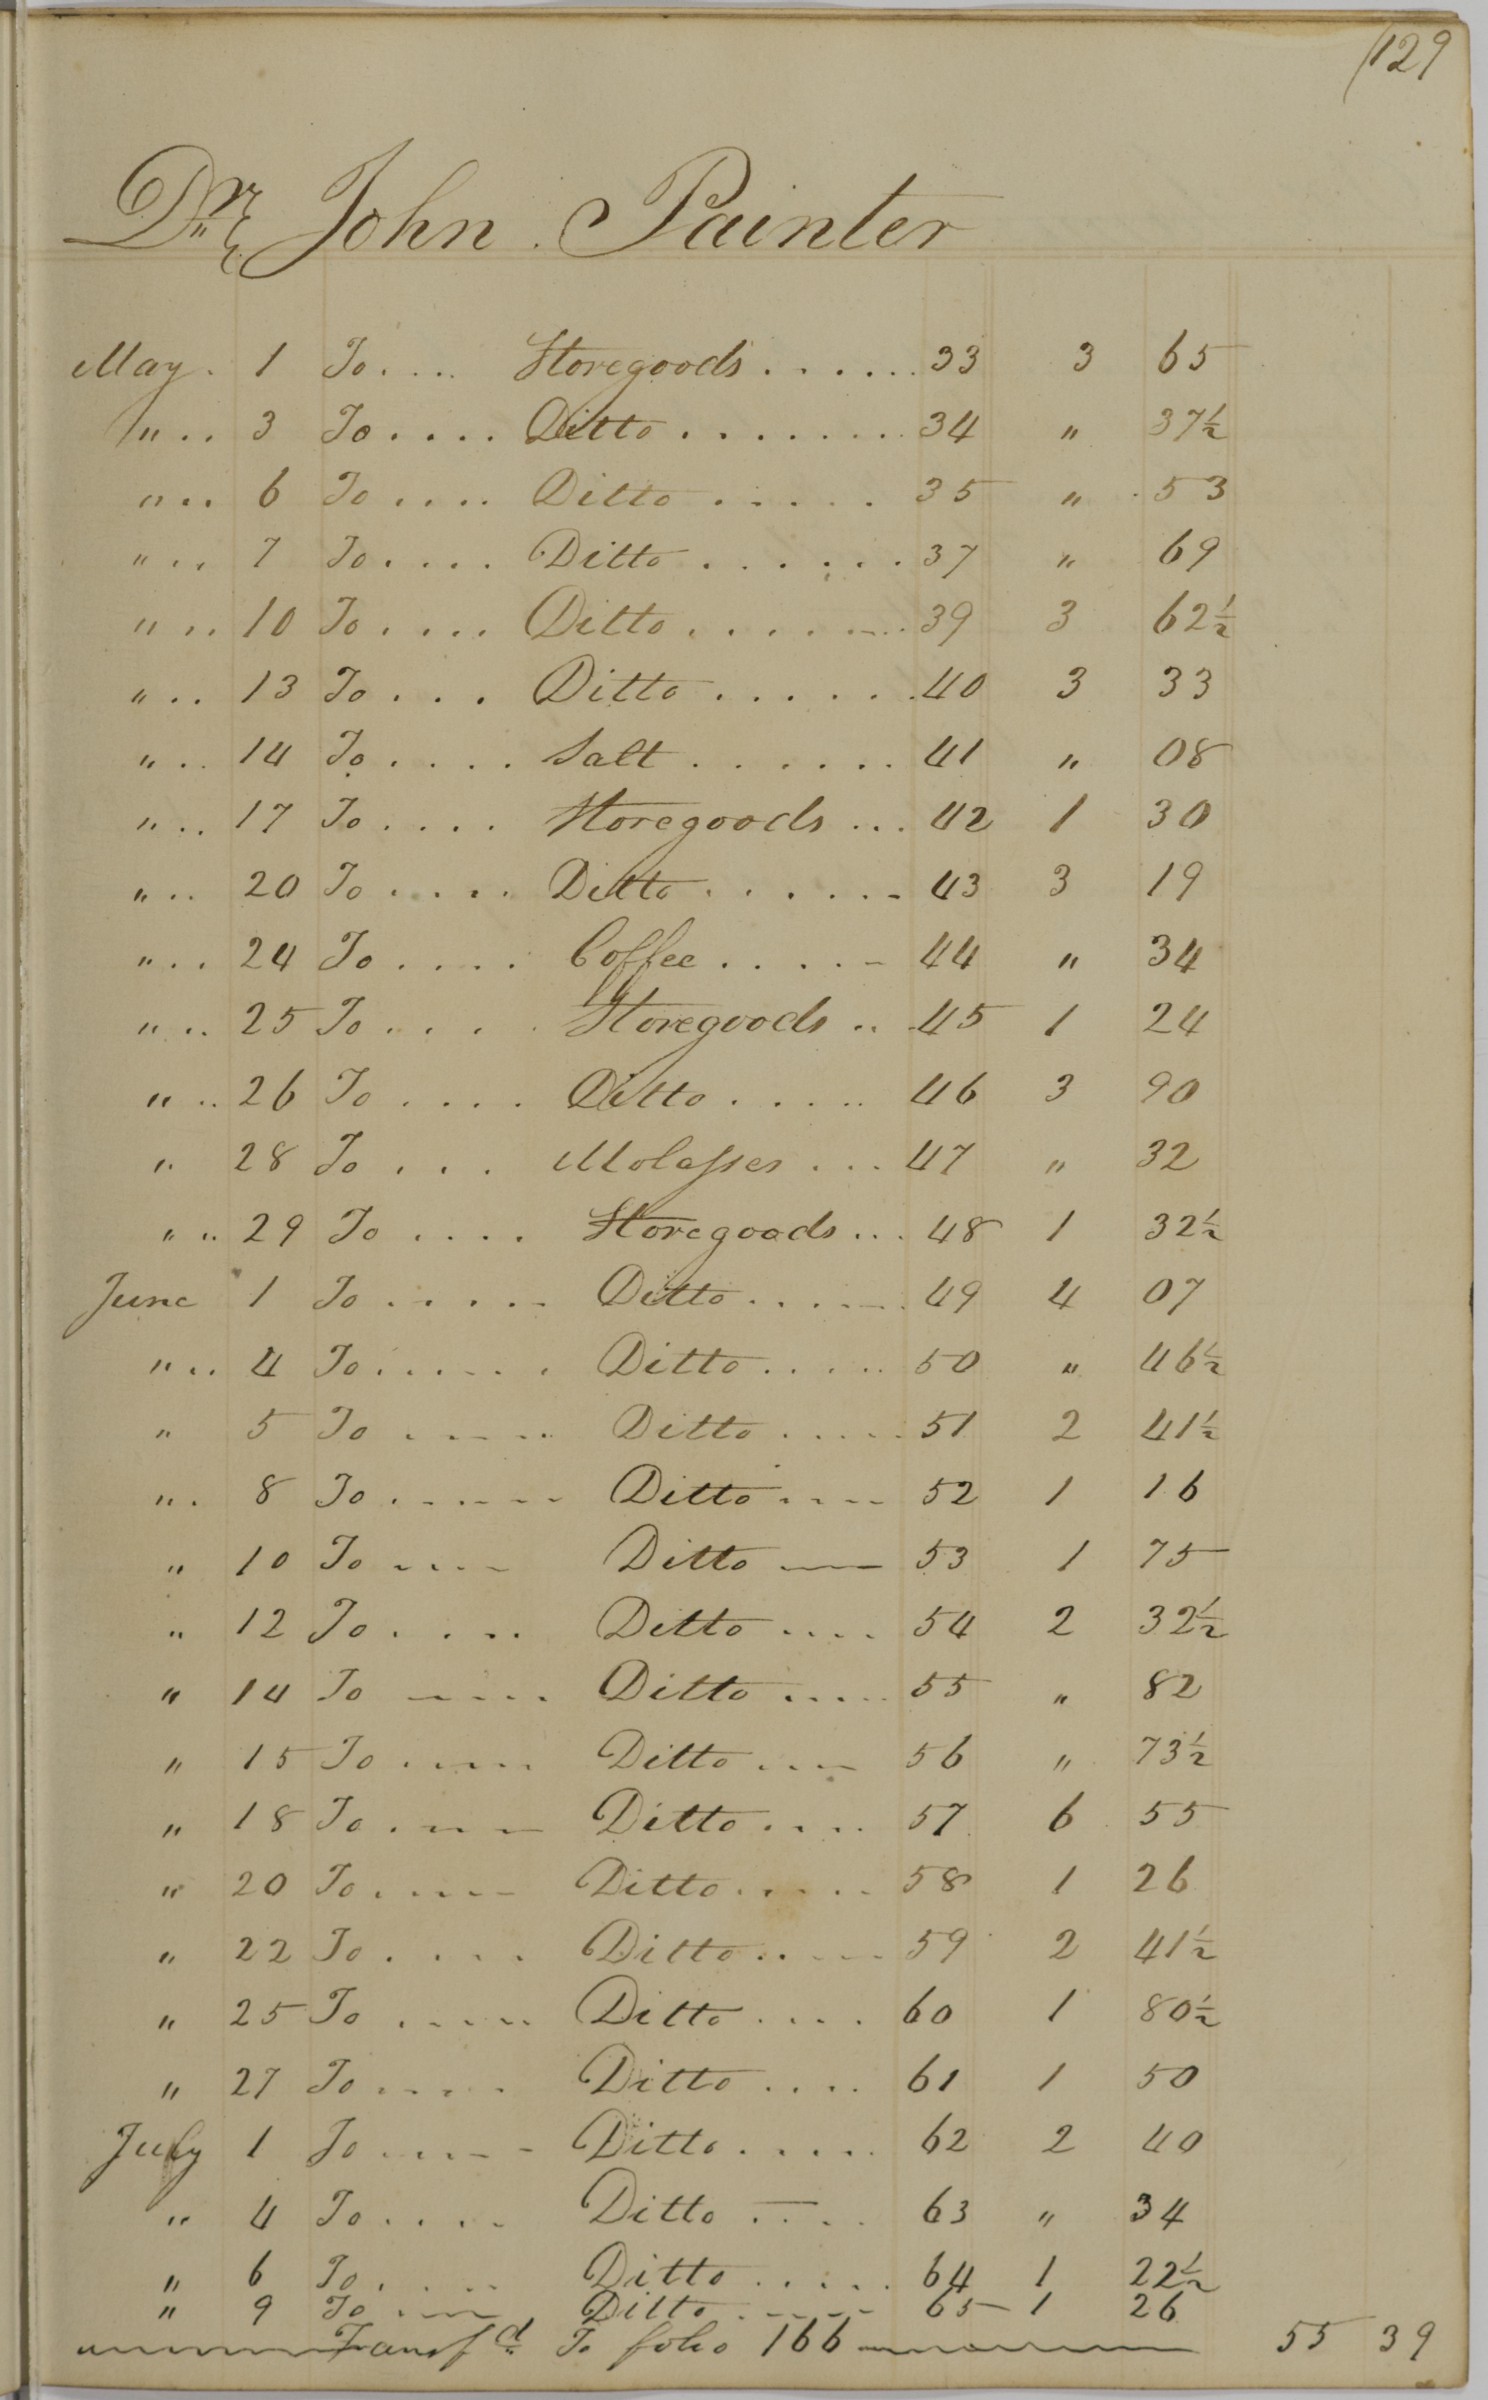 129
Dr John Painter
May . 1 To .... Storegoods ...... 33 3 65
" .. 3 To .... Ditto ....... 34 " 37½
" .. 6 To .... Ditto ..... 35 " 53
" .. 7 To .... Ditto ...... 37 " 69
" .. 10 To .... Ditto ...... 39 3 62½
" .. 13 To ... Ditto ...... 40 3 33
" .. 14 To .... Salt ...... 41 " 08
" .. 17 To .... Storegoods ... 42 1 30
" .. 20 To .... Ditto ...... 43 3 19
" .. 24 To .... Coffee ..... 44 " 34
" .. 25 To .... Storegoods .. 45 1 24
" .. 26 To .... Ditto ..... 46 3 90
" 28 To ... Molasses ... 47 " 32
" .. 29 To .... Storegoods ... 48 1 32½
June 1 To ..... Ditto ...... 49 4 07
" .. 4 To ...... Ditto ..... 50 " 46½
" 5 To ..... Ditto ..... 51 2 41½
" . 8 To ...... Ditto .... 52 1 16
" 10 To .... Ditto — 53 1 75
" 12 To .... Ditto .... 54 2 32½
" 14 To .... Ditto ..... 55 " 82
" 15 To .... Ditto ... 56 " 73½
" 18 To .... Ditto .... 57 6 55
" 20 To ..... Ditto ..... 58 1 26
" 22 To .... Ditto ..... 59 2 41½
" 25 To ..... Ditto .... 60 1 80½
" 27 To .... Ditto .... 61 1 50
July 1 To ..... Ditto ..... 62 2 40
" 4 To .... Ditto .... 63 " 34
" 6 To .... Ditto ..... 64 1 22½
" 9 To ... Ditto ..... 65 1 26
Transfd To folio 166 55 39